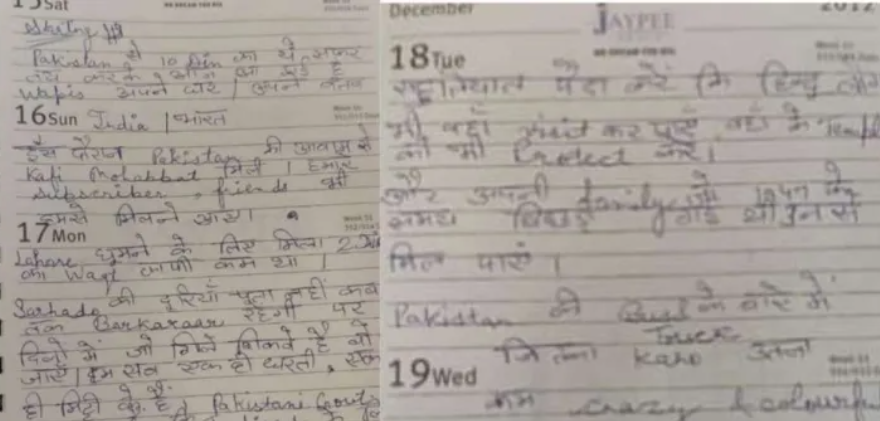 15 Sat
Pakistan से 10 din का ये सफर
तय करके आज आ गई है
Wapis अपने घर | अपने वतन
16 Sun India | भारत
इस दौरान Pakistan की आवाम से
Kafi Mohabbat मिली | हमारे
subscriber, friends भी
हमसे मिलने आए |
17 Mon
Lahore घूमने के लिए मिला 2
का Waqt काफी कम था |
Sarhado की दूरियाँ पता नहीं कब
तक Barkaraar रहेंगी पर
दिलों में जो गिले शिकवे है वो
जाएँ | हम सब एक ही धरती, एक
ही मिट्टी के है | Pakistani
December
JAYPEE
2012
18 Tue
पैदा करें कि हिन्दू लोग
भी वहाँ visit कर पाएँ वहाँ के
को भी Protect करें |
और अपनी family जो 1947 के
समय बिछड़ गई थी उनसे
मिल पाएं |
Pakistan की के बारे में
जितना karo उतना
19 Wed
कम crazy & colourful